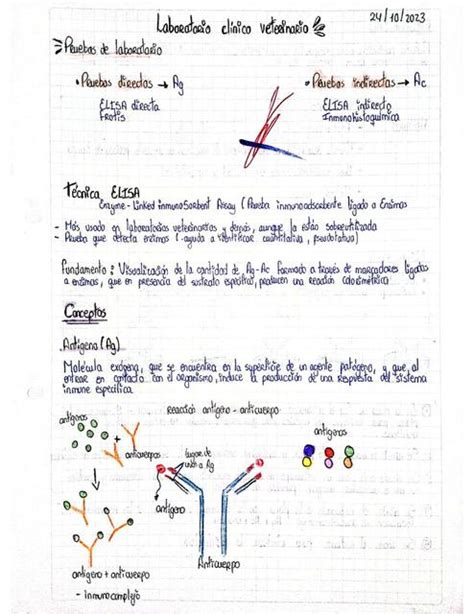 24/10/2023
Laboratorio clínico veterinario
Pruebas de laboratorio
• Pruebas directas → Ag
ELISA directa
Frotis
• Pruebas indirectas → Ac
ELISA indirecto
Inmunohistoquímica
Técnica ELISA
Enzyme-Linked inmunoSorbent Assay (Prueba inmunoadsorbente ligado a Enzimas
- Más usado en laboratorios veterinarios y demás, aunque la están sobreutilizada
- Prueba que detecta enzimas ( ayuda a cuantitativa,
Fundamento: Visualización de la cantidad de Ag-Ac formado a través de marcadores ligados
a enzimas, que en presencia del sustrato específico, producen una reacción colorimétrica
Conceptos
Antígeno (Ag)
Molécula exógena, que se encuentra en la superficie de un agente patógeno, y que, al
entrar en contacto con el organismo, induce la producción de una respuesta del sistema
inmune específica.
Reacción antígeno - anticuerpo
antígenos
anticuerpos
lugar de
unión a Ag
antígeno
antígenos
Anticuerpo
antígeno + anticuerpo
- inmunocomplejo